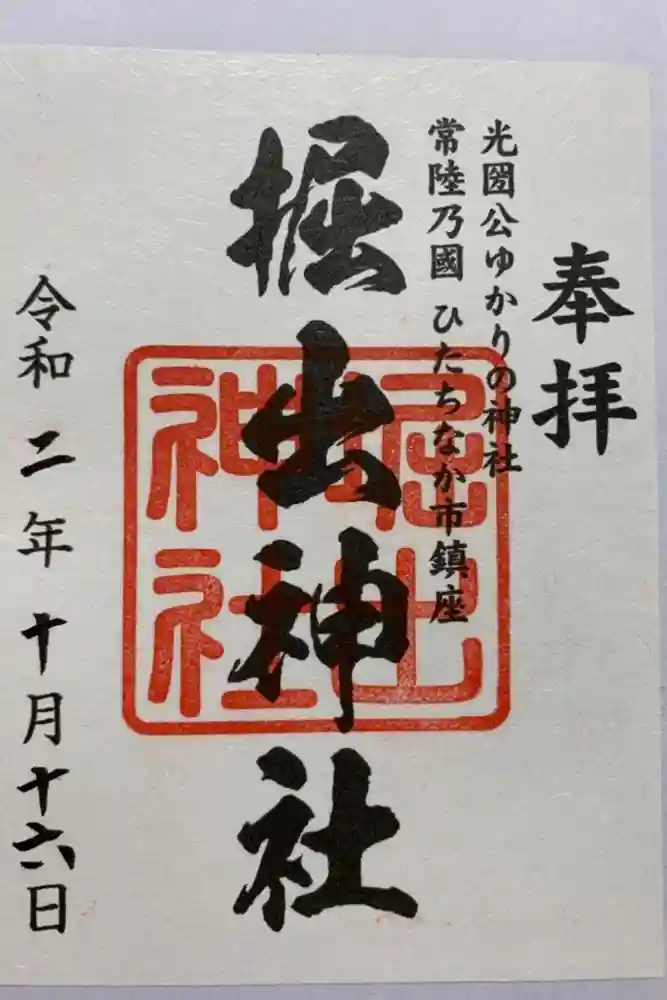 奉拝
光圀公ゆかりの神社
常陸乃國 ひたちなか市鎮座
堀出神社
堀出神社
令和二年十月十六日